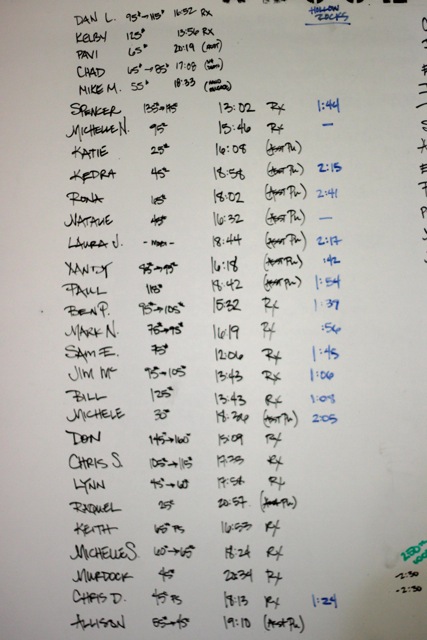 HOLLOW ROCKS
DAN L. 95# → 115# 16:52 RX
KELBY 125# 13:56 RX
PAVI 65# 20:19
CHAD 65# → 85# 17:08
MIKE M. 55# 18:33
SPENCER 135# → 115 13:02 Rx 1:44
MICHELLE N. 95# 15:46 Rx —
KATIE 25# 16:08 (Asst Pu)
KEDRA 45# 18:58 (Asst Pu) 2:15
RONA 18:02 (Asst Pu) 2:41
NATALIE 45# 16:32 (Asst Pu) —
LAURA J. 18:44 (Asst Pu) 2:17
XANDY → 95# 16:18 (Asst Pu) :42
PAUL 115# 18:42 (Asst Pu) 1:54
BEN P. 95# → 105# 15:32 Rx 1:39
MARK N. 75# → 95# 16:19 Rx :56
SAM E. 75# 12:06 Rx 1:45
JIM Mc 95 → 105# 13:43 Rx 1:06
BILL 125# 13:43 Rx 1:08
MICHELE 30# 18:36 (Asst Pu) 2:05
DON 145# → 160# 15:09 Rx
CHRIS S. 105# → 115# 17:35 Rx
LYNN 45# → 60# 17:54 Rx
RAQUEL 25# 20:57 (Asst Pu)
KEITH 65# PS 16:53 Rx
MICHELLE S. 60# → 65# 18:24 Rx
MURDOCK 45# 20:34 Rx
CHRIS D. 45# PS 18:13 Rx 1:24
ALLISON 55# → 45# 19:10 (Asst Pu)
250m
-2:30
-2:30